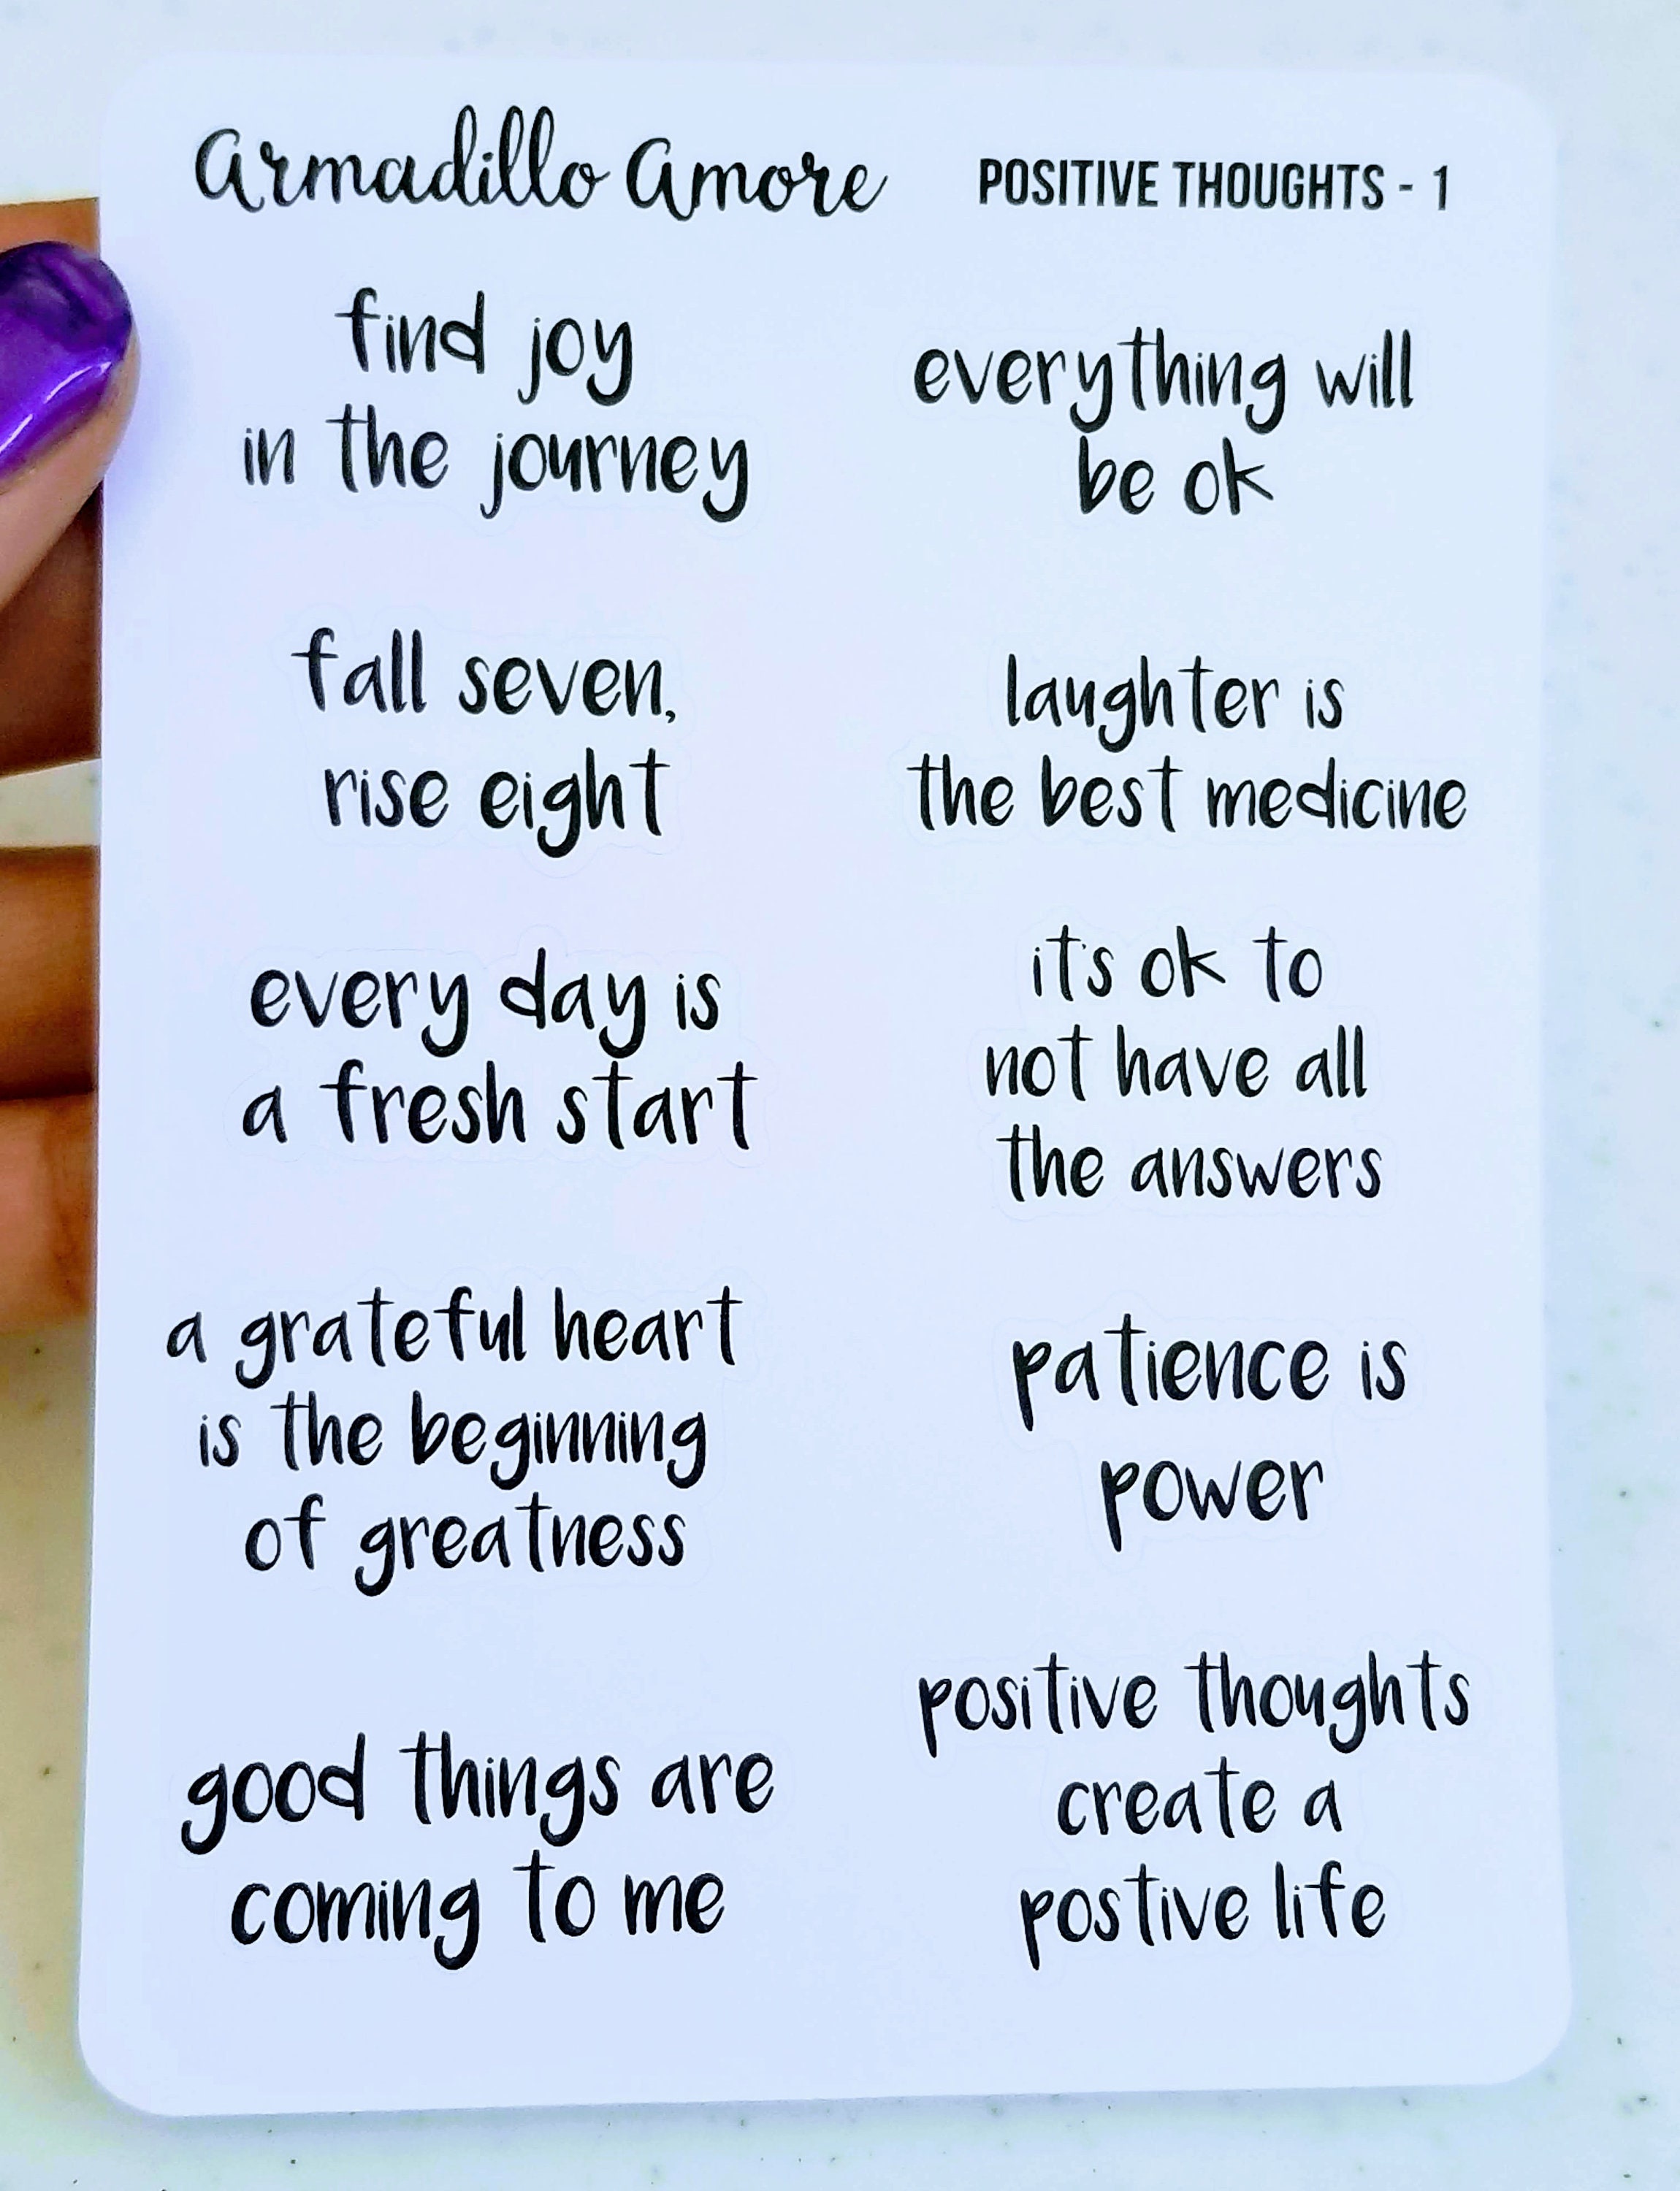 Armadillo Amore
POSITIVE THOUGHTS - 1
find joy
in the journey
everything will
be ok
fall seven,
rise eight
laughter is
the best medicine
every day is
a fresh start
it's ok to
not have all
the answers
a grateful heart
is the beginning
of greatness
patience is
power
good things are
coming to me
positive thoughts
create a
postive life